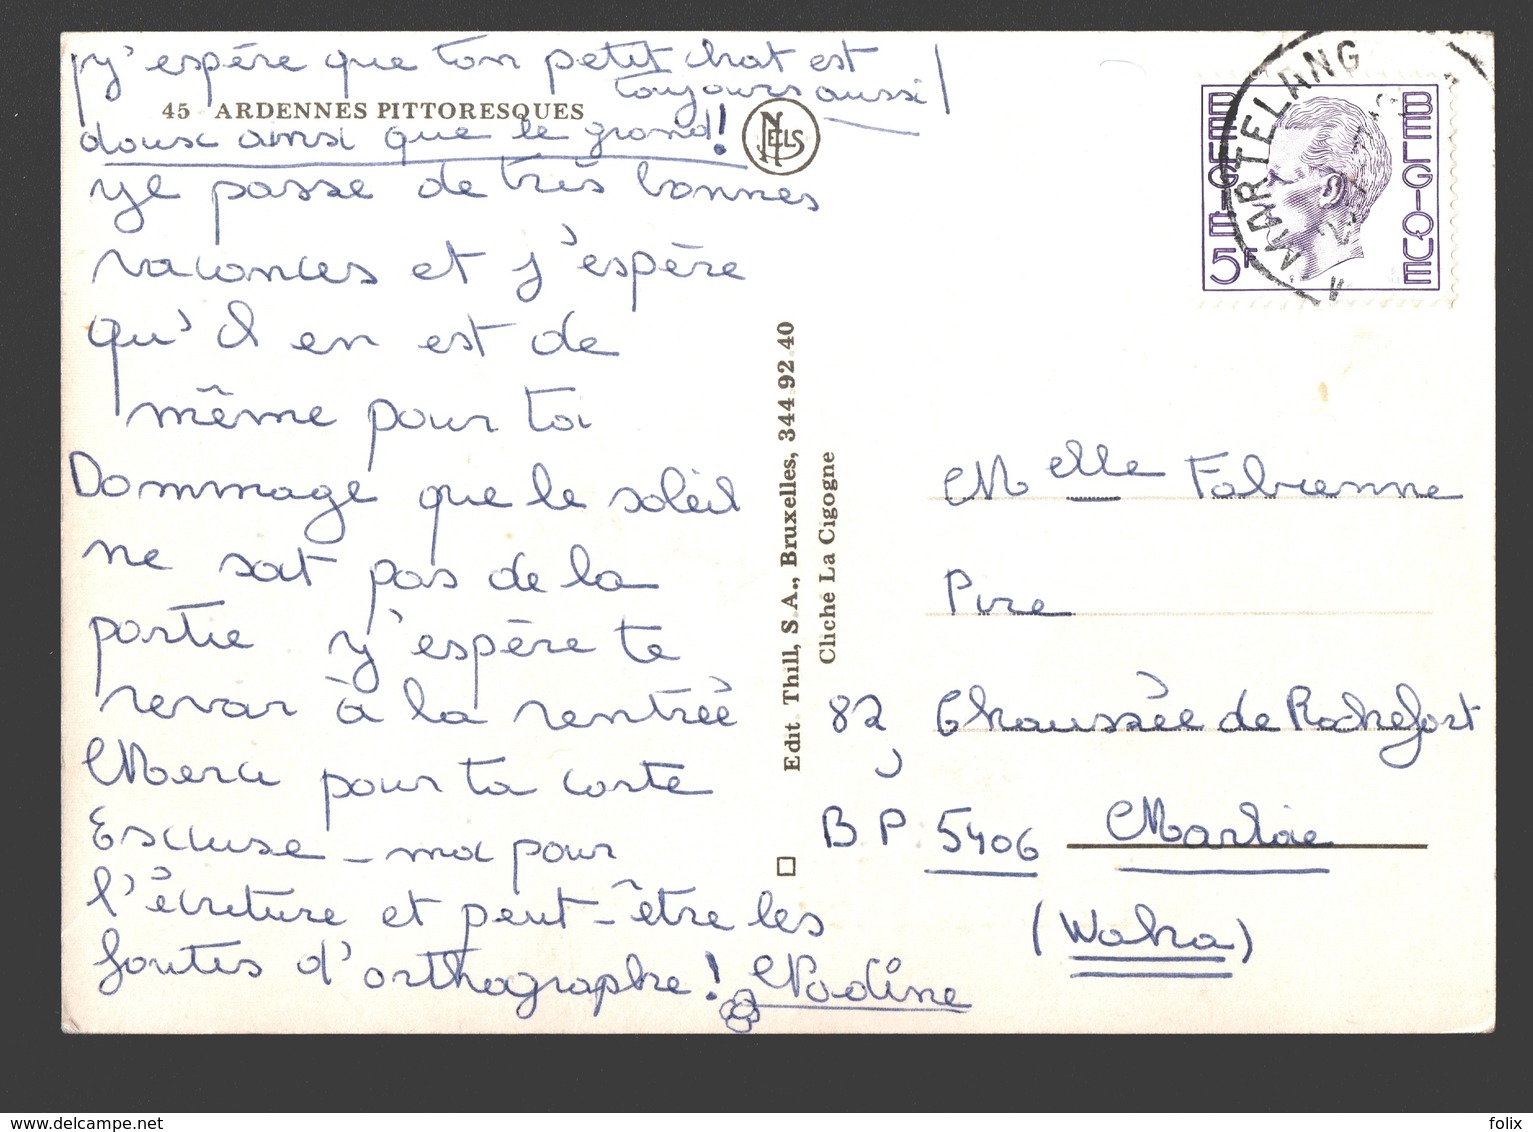 j'espère que ton petit chat est
toujours aussi
45 ARDENNES PITTORESQUES
doux ainsi que le grand!
NELS
Je passe de très bonnes
vacances et j'espère
qu'il en est de
même pour toi
Dommage que le soleil
ne soit pas de la
partie j'espère te
revoir à la rentrée
Merci pour ta carte
Excuse-moi pour
l'écriture et peut-être les
fautes d'orthographe! Nadine
Edit. Thill, S.A., Bruxelles, 344 92 40
Cliché La Cigogne
BELGIE BELGIQUE
5F
MARTELANG
Melle Fabienne
Pire
82, Chaussée de Rochefort
BP 5406 Marloie
(Waha)
delcampe.net
felix